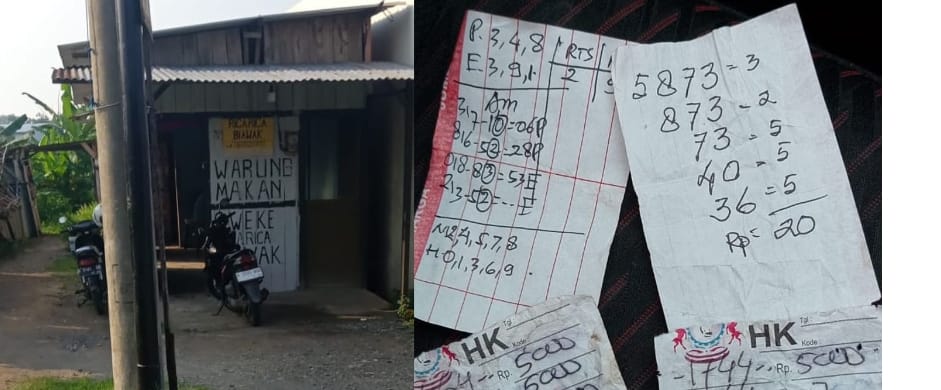 RICARICA
BIAWAK
WARUNG
MAKAN
WEKE
ARICA
WAK
P. 3, 4, 8
E 3, 9, 1.
RTS
2
Am
7-10=06P
816-52=28P
018-83=53E
213-52=--E
M2,4,5,7,8
H-0,1,3,6,9.
5873=3
873-2
73-5
40=5
36=5
Rp=20
HK
Tgl.
Kode
Rp. 5000
HK
Tgl.
Kode
-1744-- Rp. 5000